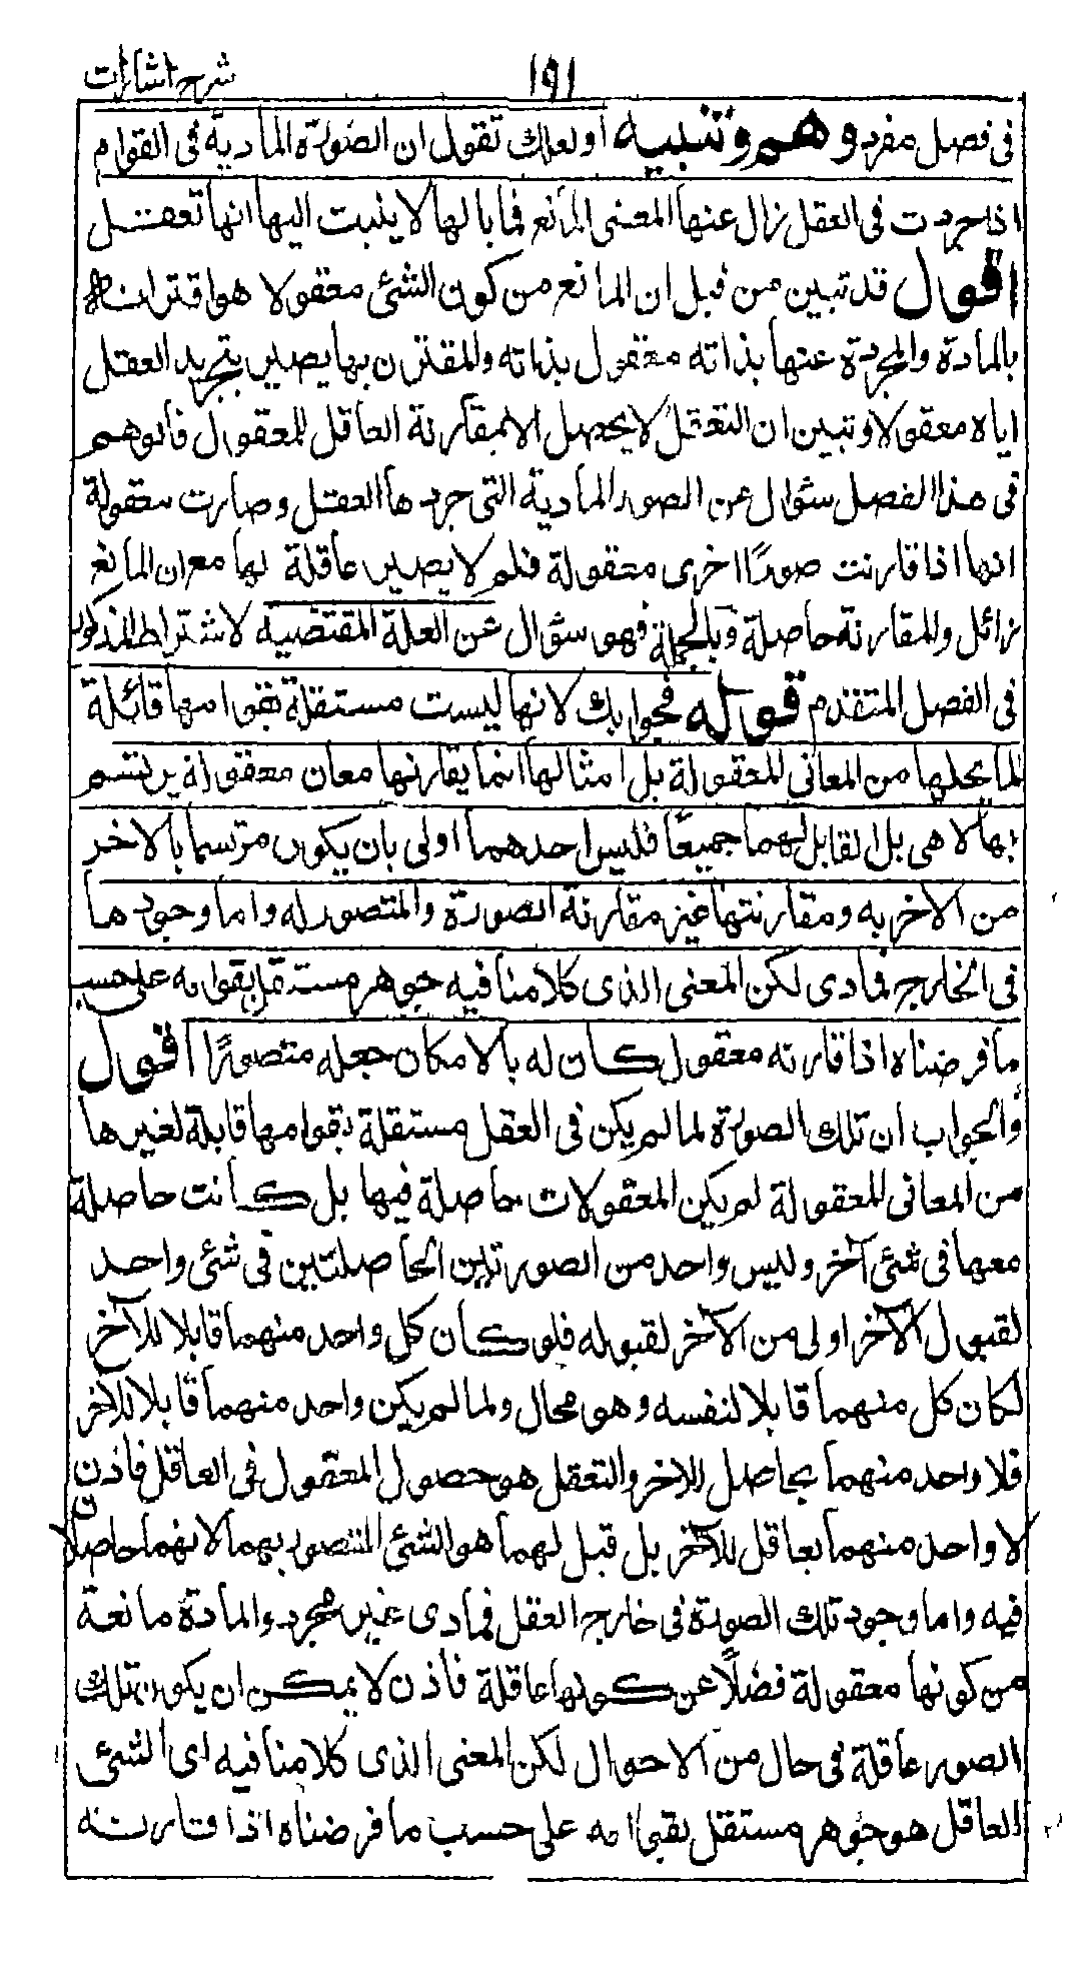 شرح اشارات
١٩١
فى فصل مفرد وهم وتنبيه او لعلك تقول ان الصورة المادية فى القوام
اذا جردت فى العقل زال عنها المعنى المانع فما بالها لا ينسب اليها انها تعقل
اقول قد تبين من قبل ان المانع من كون الشئ معقولا هو اقترانه
بالمادة والمجردة عنها بذاته معقول بذاته والمقترن بها يصير بتجريد العقل
اياه معقولا وتبين ان التعقل لا يحصل الا بمقارنة العاقل للمعقول فالوهم
فى هذا الفصل سؤال عن الصور المادية التى جردها العقل وصارت معقولة
انها اذا قارنت صورًا اخرى معقولة فلم لا يصير عاقلة لها مع ان المانع
زائل والمقارنة حاصلة وبالجملة فهو سؤال عن العلة المقتضية لاشتراط المذكور
فى الفصل المتقدم قوله فجوابك لانها ليست مستقلة بقوامها قائلة
لما يحلها من المعانى المعقولة بل امثالها انما يقارنها معان معقولة يرتسم
بها لا هى بل القابل لهما جميعًا فليس احدهما اولى بان يكون مرتسما بالاخر
من الاخر به ومقارنتها غير مقارنة الصورة والمتصور له واما وجودها
فى الخارج فمادى لكن المعنى الذى كلامنا فيه جوهر مستقل بقوامه على حسب
ما فرضناه اذا قارنه معقول كان له بالامكان جعله متصورًا اقول
والجواب ان تلك الصورة لما لم يكن فى العقل مستقلة بقوامها قابلة لغيرها
من المعانى المعقولة لم يكن المعقولات حاصلة فيها بل كانت حاصلة
معها فى شئ آخر وليس واحد من الصورتين الحاصلتين فى شئ واحد
لقبول الآخر اولى من الآخر لقبوله فلو كان كل واحد منهما قابلا للآخر
لكان كل منهما قابلا لنفسه وهو محال ولما لم يكن واحد منهما قابلا للاخر
فلا واحد منهما بحاصل للاخر والتعقل هو حصول المعقول فى العاقل فاذن
لا واحد منهما بعاقل للآخر بل قبل لهما هو الشئ المتصور بهما لانهما حاصلان
فيه واما وجود تلك الصورة فى خارج العقل فمادى غير مجرد والمادة مانعة
من كونها معقولة فضلًا عن كونها عاقلة فاذن لا يمكن ان يكون تلك
الصور عاقلة فى حال من الاحوال لكن المعنى الذى كلامنا فيه اى الشئ
العاقل هو جوهر مستقل بقوامه على حسب ما فرضناه اذا قارنته